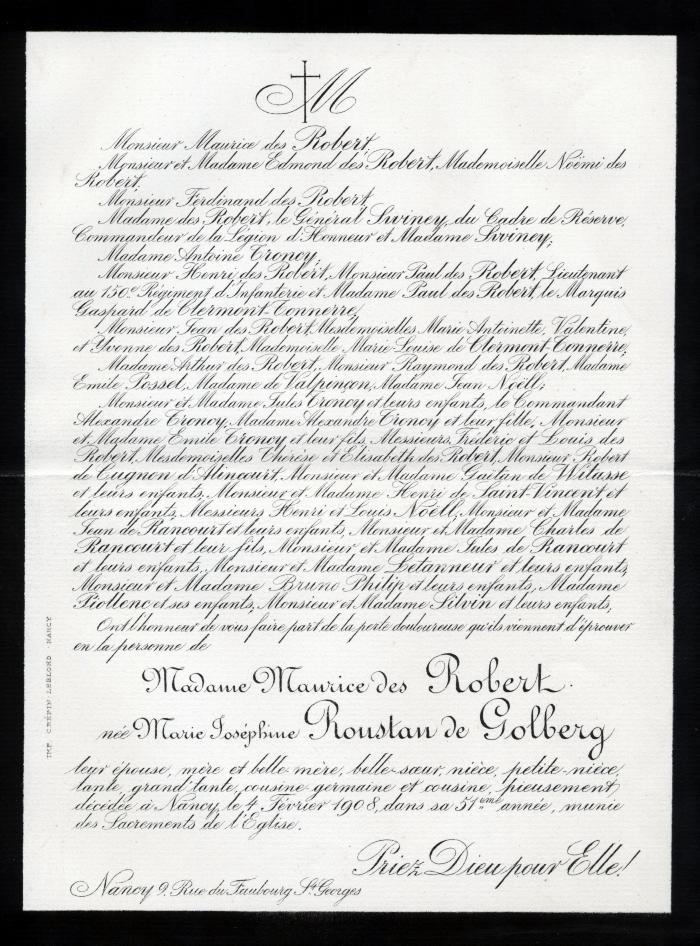 M
Monsieur Maurice des Robert,
Monsieur et Madame Edmond des Robert, Mademoiselle Noëmi des
Robert,
Monsieur Ferdinand des Robert,
Madame des Robert, le Général Siviney, du Cadre de Réserve,
Commandeur de la Légion d'Honneur et Madame Siviney;
Madame Antoine Cronoy;
Monsieur Henri des Robert, Monsieur Paul des Robert, Lieutenant
au 150e Régiment d'Infanterie et Madame Paul des Robert, le Marquis
Gaspard de Clermont-Tonnerre,
Monsieur Jean des Robert, Mesdemoiselles Marie Antoinette, Valentine,
et Yvonne des Robert, Mademoiselle Marie-Louise de Clermont-Tonnerre,
Madame Arthur des Robert, Monsieur Raymond des Robert, Madame
Emile Possel, Madame de Valpinçon, Madame Jean Noëll;
Monsieur et Madame Jules Cronoy et leurs enfants, le Commandant
Alexandre Cronoy, Madame Alexandre Cronoy et leur fille, Monsieur
et Madame Emile Cronoy et leur fils, Messieurs Frédéric et Louis des
Robert, Mesdemoiselles Thérèse et Elisabeth des Robert, Monsieur Robert
de Cugnon d'Alincourt, Monsieur et Madame Gaëtan de Witasse
et leurs enfants, Monsieur et Madame Henri de Saint-Vincent et
leurs enfants, Messieurs Henri et Louis Noëll, Monsieur et Madame
Jean de Rancourt et leurs enfants, Monsieur et Madame Charles de
Rancourt et leur fils, Monsieur et Madame Jules de Rancourt
et leurs enfants, Monsieur et Madame Letanneur et leurs enfants,
Monsieur et Madame Bruno Philip et leurs enfants, Madame
Piollenc et ses enfants, Monsieur et Madame Silvin et leurs enfants,
Ont l'honneur de vous faire part de la perte douloureuse qu'ils viennent d'éprouver
en la personne de
Madame Maurice des Robert
née Marie Joséphine Roustan de Golberg
leur épouse, mère et belle-mère, belle-sœur, nièce, petite-nièce,
tante, grand'tante, cousine-germaine et cousine, pieusement
décédée à Nancy, le 4 Février 1908, dans sa 51ème année, munie
des Sacrements de l'Eglise.
Priez Dieu pour Elle!
Nancy 9, Rue du Faubourg St Georges
IMP. CRÉPIN-LEBLOND NANCY